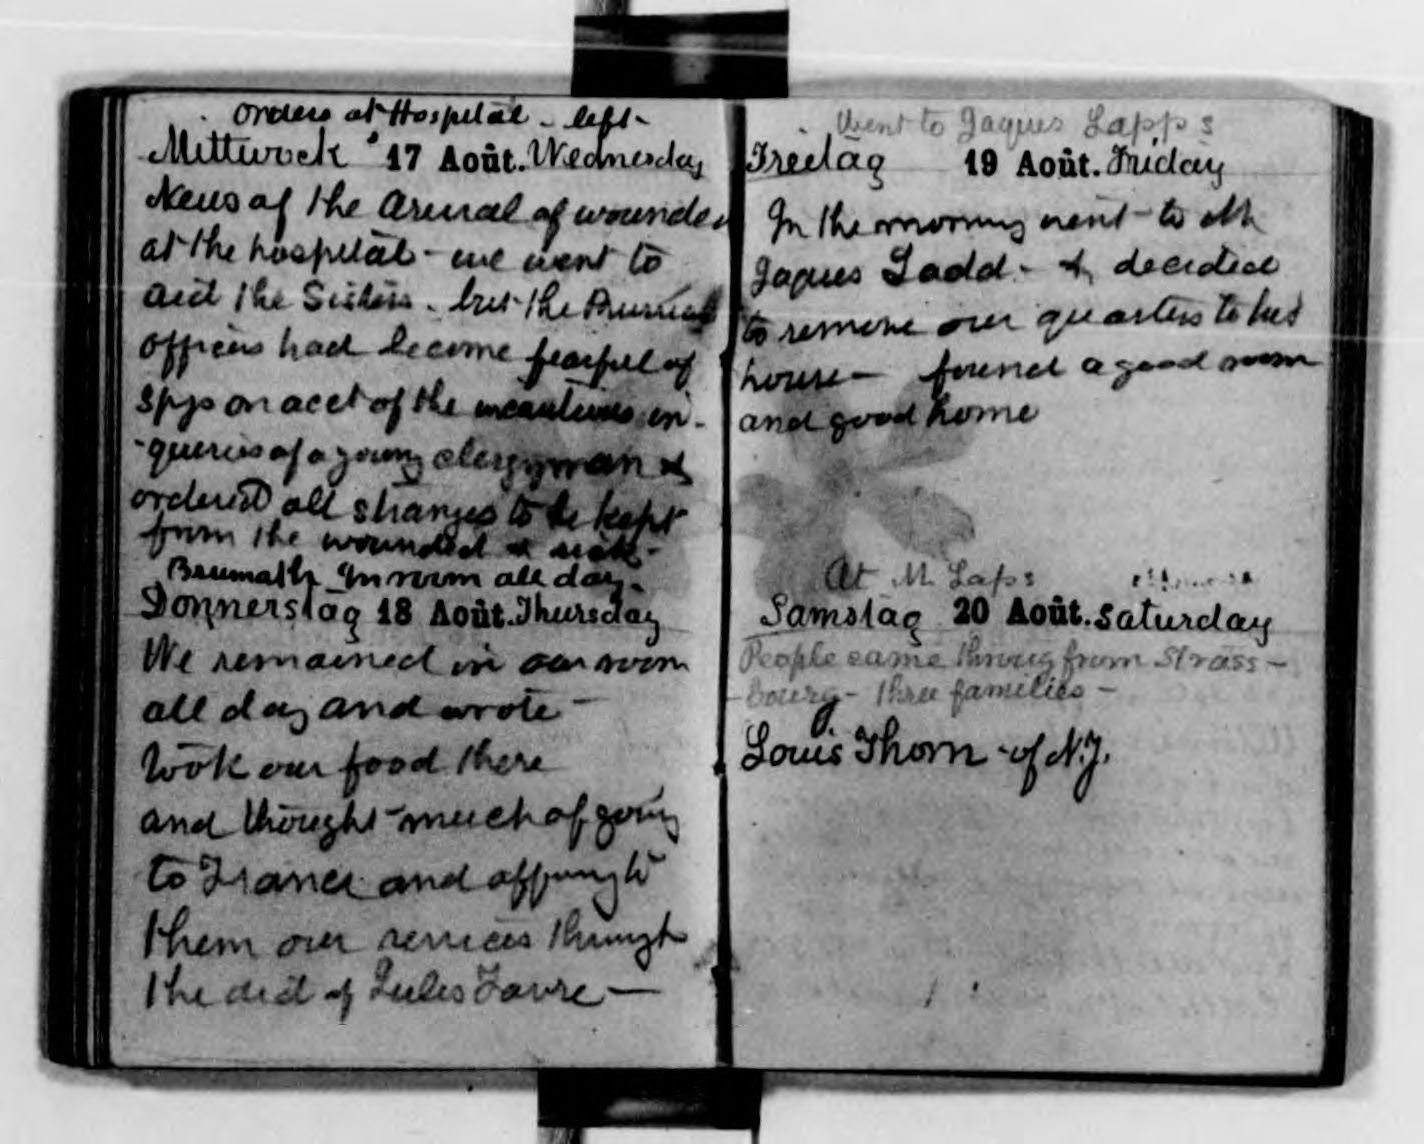 Orders at Hospital - left -
Mittwock 17 Août. Wednesday
News of the arrival of wounded
at the hospital - we went to
aid the Sisters - but the Prussian
officers had become fearful of
spys on acct of the incautious in-
-queries of a young clergyman &
ordered all stranges to be kept
from the wounded & sick -
Brumath In room all day -
Donnerstag 18 Août. Thursday
We remained in our room
all day and wrote -
took our food there
and thought much of going
to France and offering to
them our services through
the aid of Jules Favre -
Went to Jaques Lapps
Freitag 19 Août. Friday
In the morning went to
Jaques Ladd - & decided
to remove our quarters to his
house - found a good room
and good home
At M. Laps
Samstag 20 Août. Saturday
People came throug from Strass-
-bourg - three families -
Louis Thorn - of N.J.